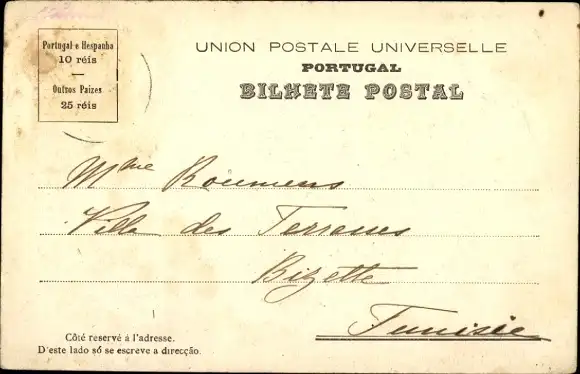 Portugal e Hespanha
10 réis
Outros Paizes
25 réis
UNION POSTALE UNIVERSELLE
PORTUGAL
BILHETE POSTAL
Mme Roumens
Ville des Terrasses
Bizette
Tunisie
Côté reservé à l'adresse.
D'este lado só se escreve a direcção.